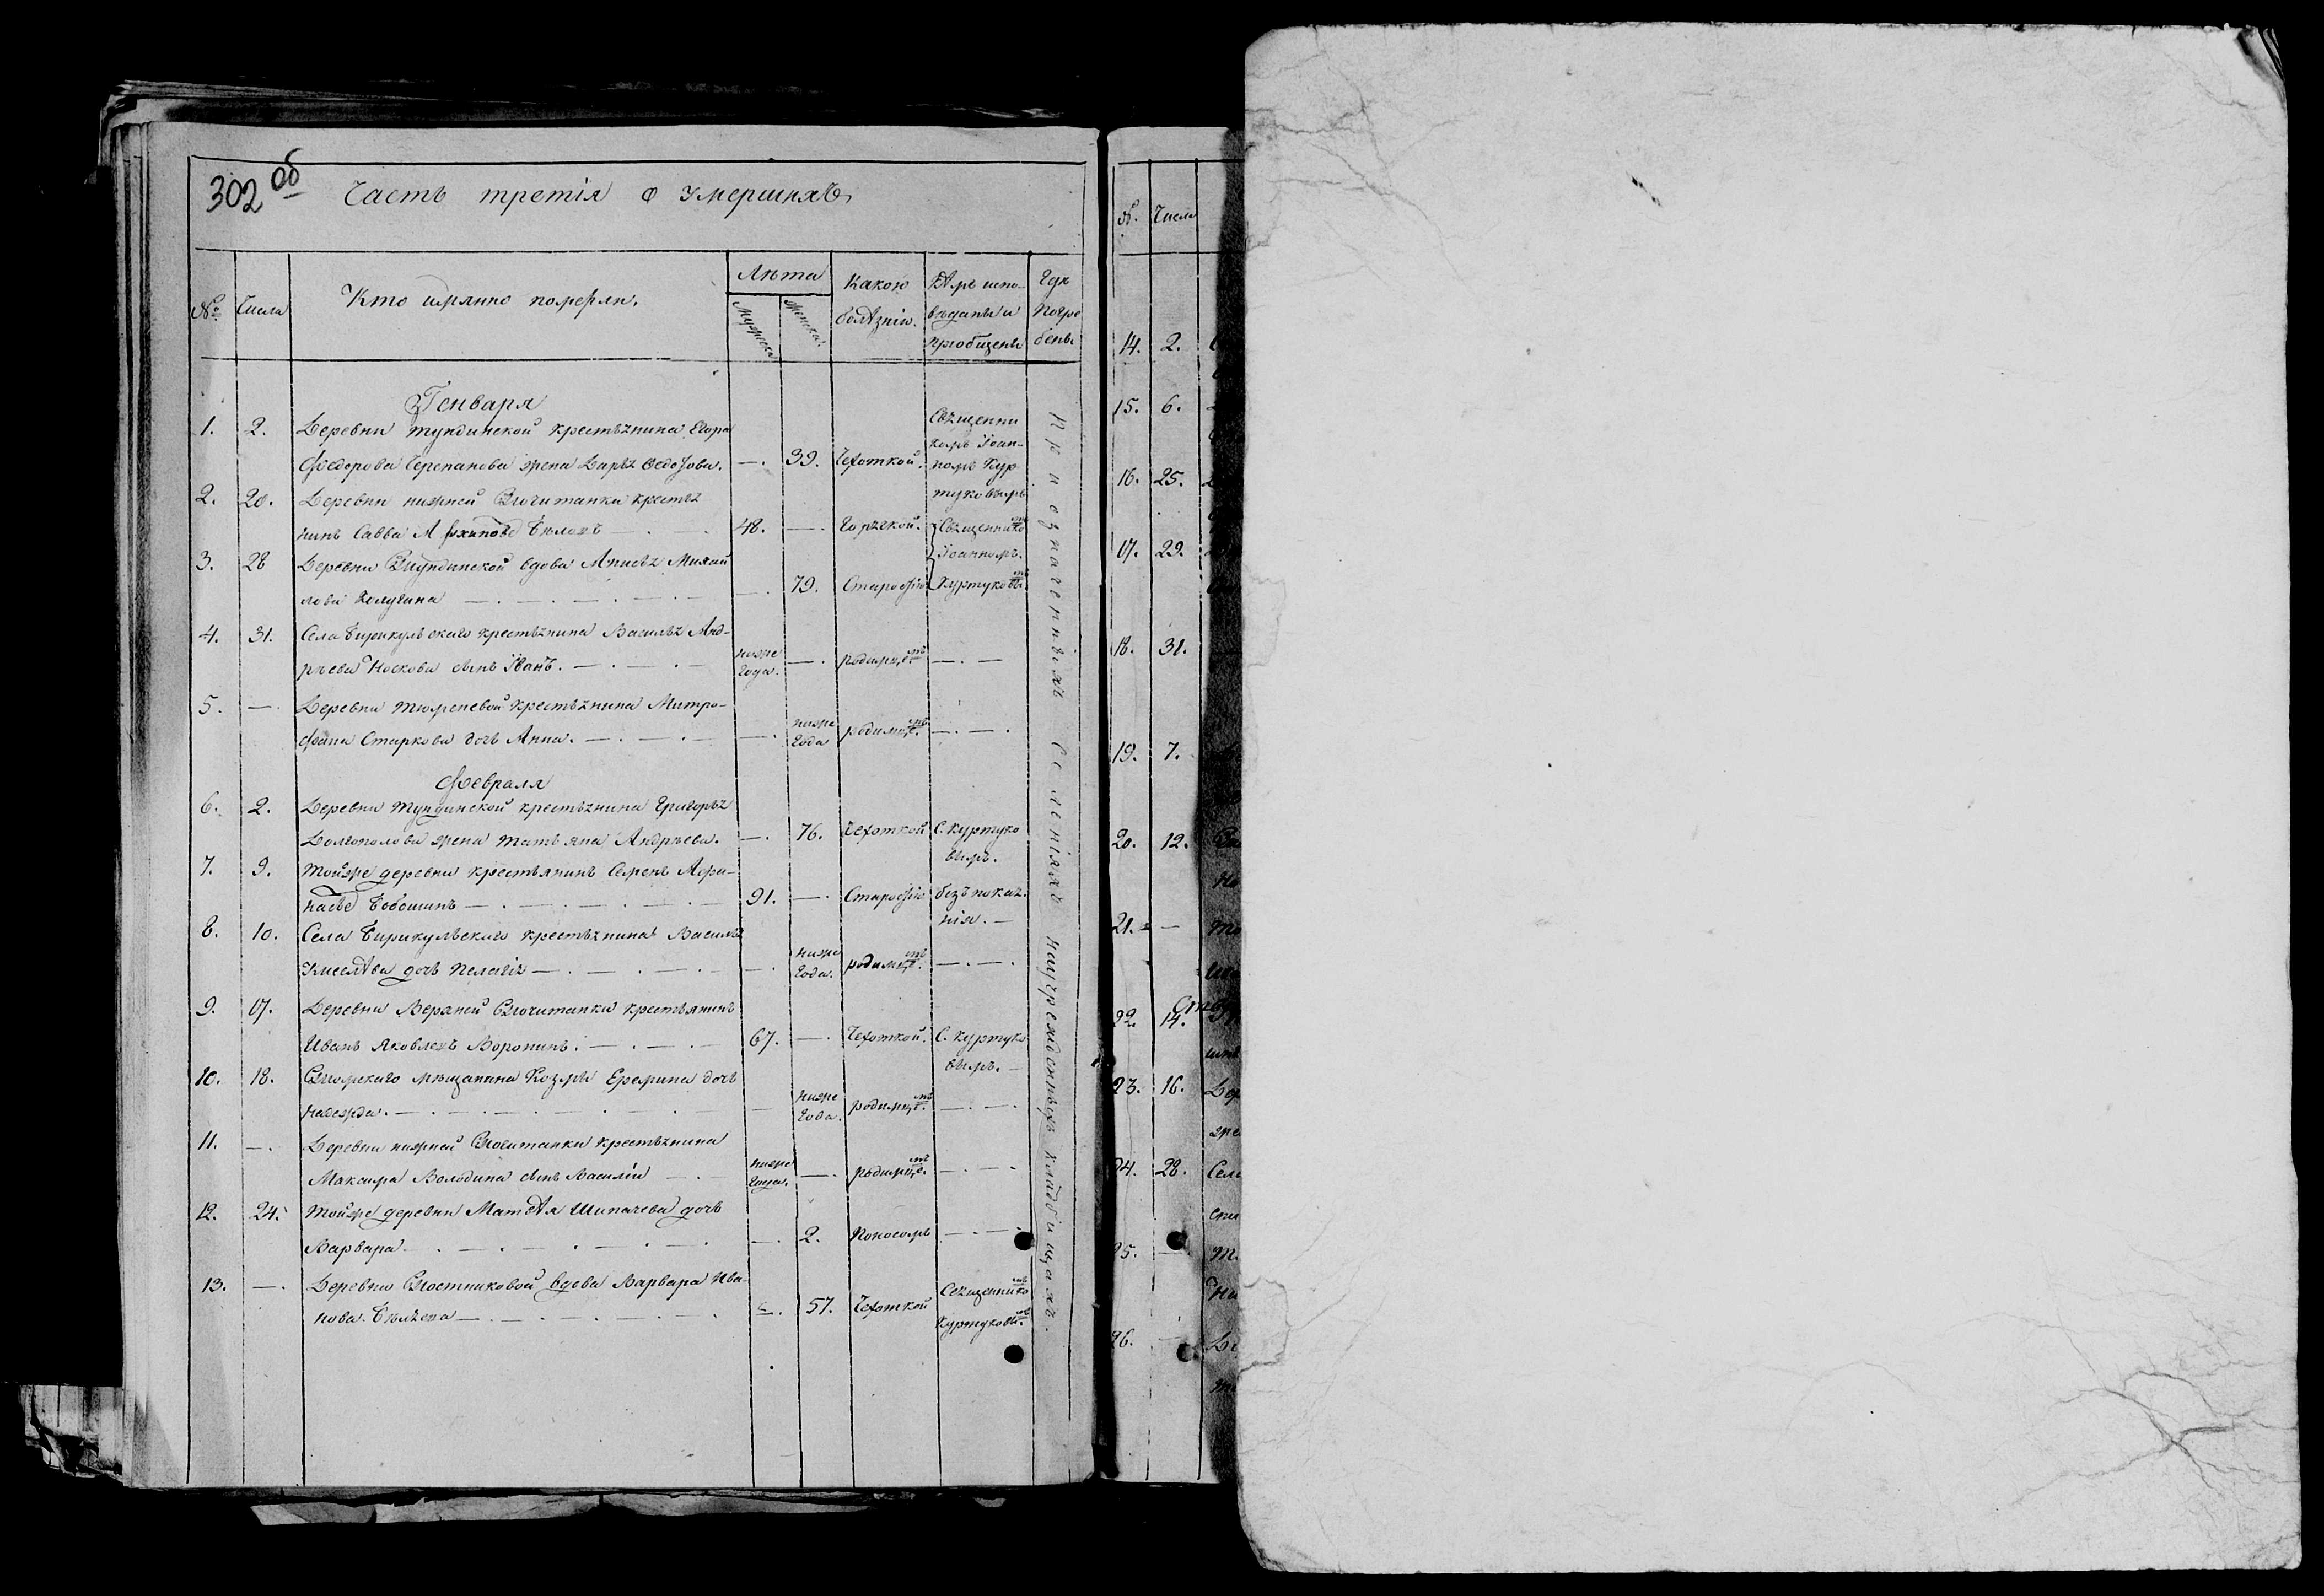 302 об
Часть третія о умершихъ
№ Числа Кто имянно померли. Лѣта Мужеска Женска. Какою болѣзнію. Кѣмъ испо-
вѣданы и
пріобщены Гдѣ
Погре
бены
Генваря
1. 2. Деревни Тундинской крестьянина Егора
Федорова Черепанова жена Дарья Федотова. —. 39. Чехоткой. Священни
комъ Іоан-
номъ Кур
туковымъ
2. 20. Деревни нижней Почитанки крестья
нинъ Савва Архиповъ Бѣловъ 48. —. Горячкой. Священнико
Іоанномъ.
3. 28 Деревни Тундинской вдова Анисья Михай
лова —. 79. Старостію Куртуковы
4. 31. Села Бирикульскаго крестьянина Василья Анд-
рѣева Носкова сынъ Иванъ. ниже
года. —. родимце —.—
5. —. Деревни Тюменевой крестьянина Митро-
фана Старкова дочь Анна. —. ниже
года родимце. —.—.
Февраля
6. 2. Деревни Тундинской крестьянина Григорья
Долгополова жена Татьяна Андрѣева. —. 76. Чехоткой С. Куртуко
вымъ.
7. 9. Тойже деревни крестьянинъ Семенъ Афа-
насьевъ 91. —. Старостію безъ покая-
нія. —
8. 10. Села Бирикульскаго крестьянина Василья
дочь Пелагія —. ниже
года. родимце. —.—.
9. 17. Деревни Верхней Почитанки крестьянинъ
Иванъ Яковлевъ Воронинъ. 67. —. Чехоткой. С. Куртуко
вымъ. —
10. 18. Томскаго мѣщанина Козмы Еремина дочь
Надежда. — ниже
года. родимце. —.—.
11. —. Деревни нижней Почитанки крестьянина
Максима Володина сынъ Василій ниже
года. —. родимце. —.—
12. 24. Тойже деревни Матвѣя Шипачева дочь
Варвара —. 2. Поносомъ —.—
13. —. Деревни Постниковой вдова Варвара Ива-
нова. —. 57. Чехоткой Священнико
Куртуковы.
При означенныхъ Селеніяхъ на учрежденныхъ кладбищахъ.
№. Числа
14. 2.
15. 6.
16. 25.
17. 29.
18. 31.
19. 7.
20. 12.
21. —
22. 14.
23. 16. Дер
24. 28. Села
25. —
26. —